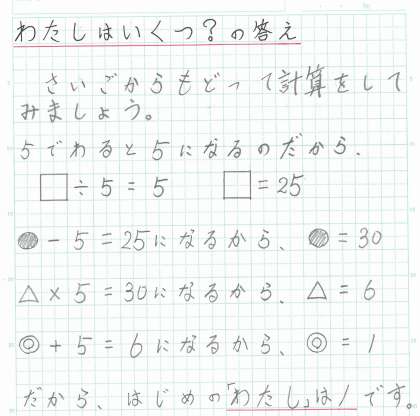 わたしはいくつ?の答え
さいごからもどって計算をして
みましょう。
5でわると5になるのだから.
□÷5=5　□=25
●-5=25になるから、●=30
△×5=30になるから、△=6
◎+5=6になるから、◎=1
だから、はじめの「わたし」は1です。